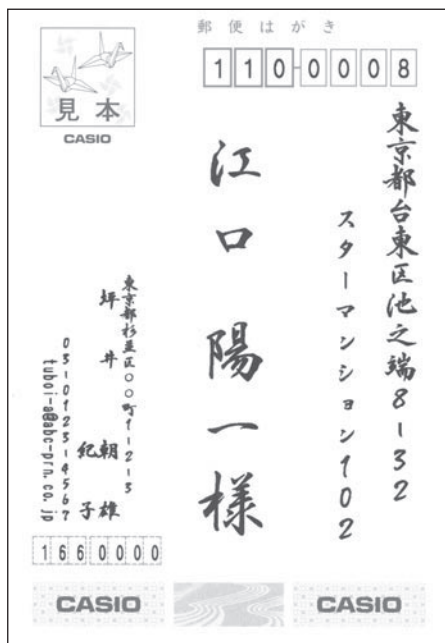 郵便はがき
見本
CASIO
110-0008
東京都台東区池之端8-132
スターマンション102
江口陽一様
東京都杉並区〇〇町1-2-3
坪井朝雄
紀子
03-0123-4567
tuboi-a@abc-prn.co.jp
1660000
CASIO
CASIO